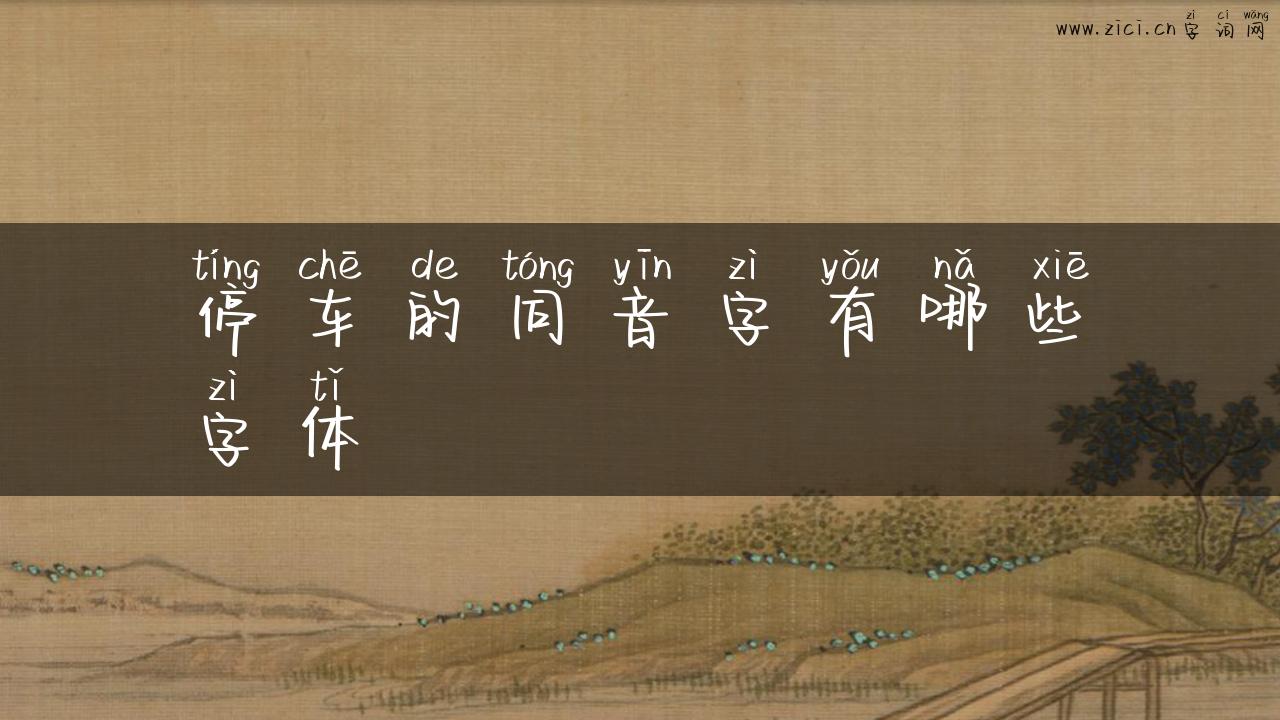 zì cí wǎng
www.zici.cn字词网
tíng chē de tóng yīn zì yǒu nǎ xiē
停车的同音字有哪些
zì tǐ
字体